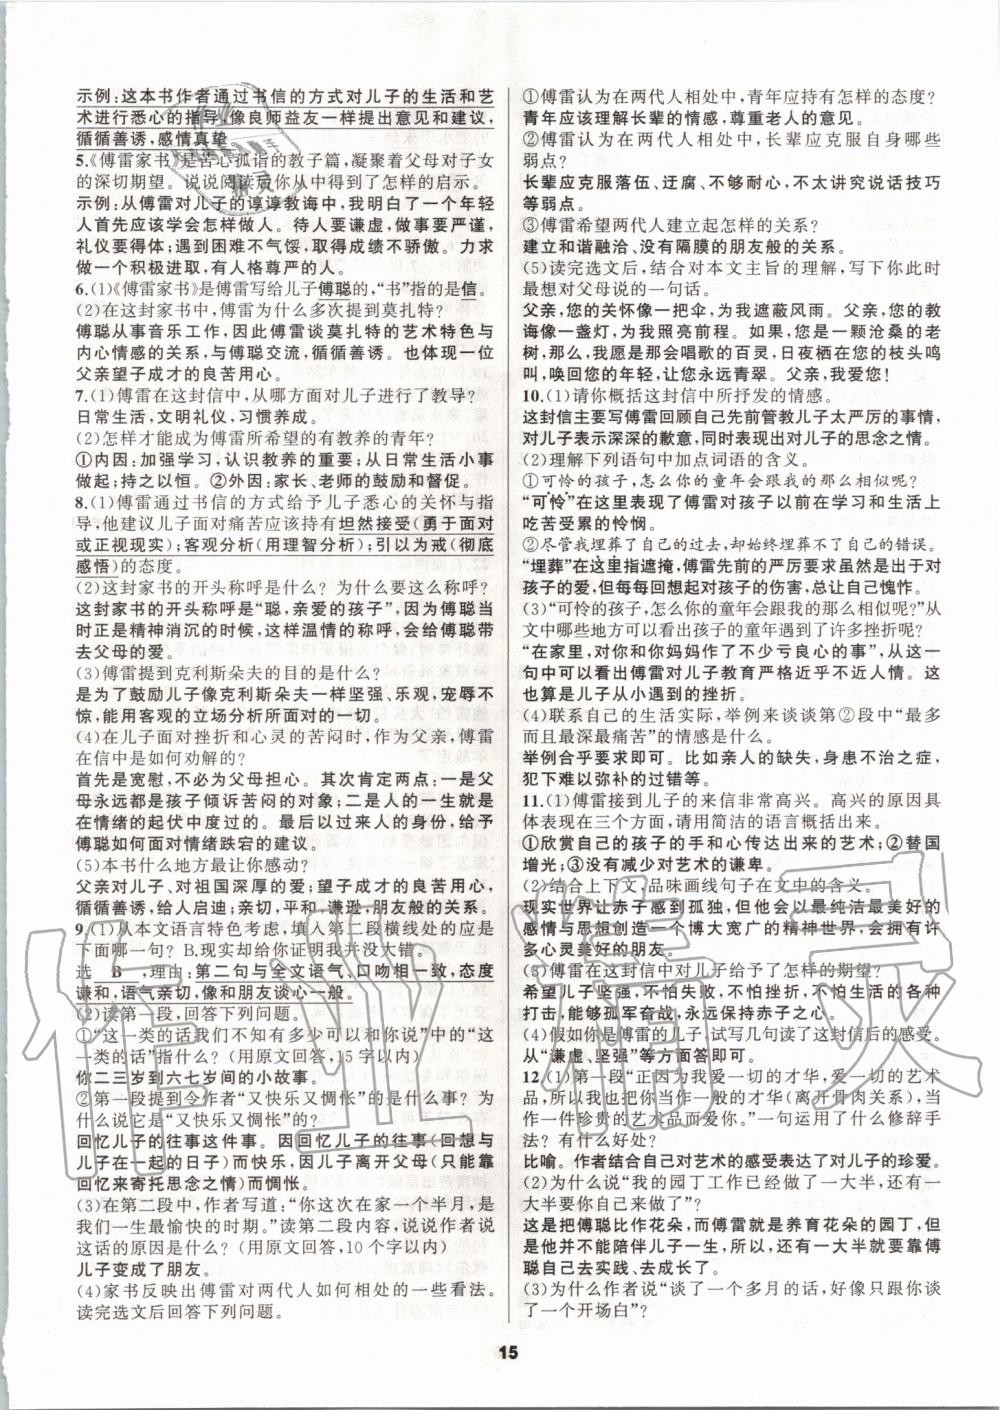 示例:这本书作者通过书信的方式对儿子的生活和艺
术进行悉心的指导,像良师益友一样提出意见和建议,
循循善诱,感情真挚
5.《傅雷家书》是苦心孤诣的教子篇,凝聚着父母对子女
的深切期望。说说阅读后你从中得到了怎样的启示。
示例:从傅雷对儿子的谆谆教诲中,我明白了一个年轻
人首先应该学会怎样做人。待人要谦虚,做事要严谨,
礼仪要得体;遇到困难不气馁,取得成绩不骄傲。力求
做一个积极进取,有人格尊严的人。
6.(1)《傅雷家书》是傅雷写给儿子傅聪的,“书”指的是信。
(2)在这封家书中,傅雷为什么多次提到莫扎特?
傅聪从事音乐工作,因此傅雷谈莫扎特的艺术特色与
内心情感的关系,与傅聪交流,循循善诱。也体现一位
父亲望子成才的良苦用心。
7.(1)傅雷在这封信中,从哪方面对儿子进行了教导?
日常生活,文明礼仪,习惯养成。
(2)怎样才能成为傅雷所希望的有教养的青年?
①内因:加强学习,认识教养的重要;从日常生活小事
做起;持之以恒。②外因:家长、老师的鼓励和督促。
8.(1)傅雷通过书信的方式给予儿子悉心的关怀与指
导,他建议儿子面对痛苦应该持有坦然接受(勇于面对
或正视现实);客观分析(用理智分析);引以为戒(彻底
感悟)的态度。
(2)这封家书的开头称呼是什么?为什么要这么称呼?
这封家书的开头称呼是“聪,亲爱的孩子”,因为傅聪当
时正是精神消沉的时候,这样温情的称呼,会给傅聪带
去父母的爱。
(3)傅雷提到克利斯朵夫的目的是什么?
是为了鼓励儿子像克利斯朵夫一样坚强、乐观,宠辱不
惊,能用客观的立场分析所面对的一切。
(4)在儿子面对挫折和心灵的苦闷时,作为父亲,傅雷
在信中是如何劝解的?
首先是宽慰,不必为父母担心。其次肯定两点:一是父
母永远都是孩子倾诉苦闷的对象;二是人的一生就是
在情绪的起伏中度过的。最后以过来人的身份,给予
傅聪如何面对情绪跌宕的建议。
(5)本书什么地方最让你感动?
父亲对儿子、对祖国深厚的爱;望子成才的良苦用心,
循循善诱,给人启迪;亲切,平和,谦逊,朋友般的关系。
9.(1)从本文语言特色考虑,填入第二段横线处的应是
下面哪一句?B.现实却给你证明我并没大错。
选 B ,理由:第二句与全文语气、口吻相一致,态度
谦和,语气亲切,像和朋友谈心一般。
(2)读第一段,回答下列问题。
①“这一类的话我们不知有多少可以和你说”中的“这
一类的话”指什么?(用原文回答,15字以内)
你二三岁到六七岁间的小故事。
②第一段提到令作者“又快乐又惆怅”的是什么事?为
什么说它是“又快乐又惆怅”?
回忆儿子的往事这件事。因回忆儿子的往事(回想与
儿子在一起的日子)而快乐,因儿子离开父母(只能靠
回忆来寄托思念之情)而惆怅。
(3)在第二段中,作者写道:“你这次在家一个半月,是
我们一生最愉快的时期。”读第二段内容,说说作者说
这话的原因是什么?(用原文回答,10个字以内)
儿子变成了朋友。
(4)家书反映出傅雷对两代人如何相处的一些看法。
读完选文后回答下列问题。
①傅雷认为在两代人相处中,青年应持有怎样的态度?
青年应该理解长辈的情感,尊重老人的意见。
②傅雷认为在两代人相处中,长辈应克服自身哪些
弱点?
长辈应克服落伍、迂腐、不够耐心,不太讲究说话技巧
等弱点。
③傅雷希望两代人建立起怎样的关系?
建立和谐融洽、没有隔膜的朋友般的关系。
(5)读完选文后,结合对本文主旨的理解,写下你此时
最想对父母说的一句话。
父亲,您的关怀像一把伞,为我遮蔽风雨。父亲,您的教
诲像一盏灯,为我照亮前程。如果,您是一颗沧桑的老
树,那么我甘心做会唱歌的百灵,日夜栖在您的枝头鸣
叫,唤回您的年轻,让您永远青翠。父亲,我爱您!
10.(1)请你概括这封信中所抒发的情感。
这封信主要写傅雷回顾自己先前管教儿子太严厉的事情,
对儿子表示深深的歉意,同时表现出对儿子的思念之情。
(2)理解下列语句中加点词语的含义。
①可怜的孩子,怎么你的童年会跟我的那么相似呢?
“可怜”在这里表现了傅雷对孩子以前在学习和生活上
吃苦受累的怜悯。
②尽管我埋葬了自己的过去,却始终埋葬不了自己的错误。
“埋葬”在这里指遮掩,傅雷先前的严厉要求虽然是出于对
孩子的爱,但每每回想起对孩子的伤害,总让自己愧怍。
(3)“可怜的孩子,怎么你的童年会跟我的那么相似呢?”从
文中哪些地方可以看出孩子的童年遇到了许多挫折呢?
“在家里,对你和你妈妈作了不少亏良心的事”,从这一
句中可以看出傅雷对儿子教育严格近乎不近人情。这
也算是儿子从小遇到的挫折。
(4)联系自己的生活实际,举例来谈谈第②段中“最多
而且最深最痛苦”的情感是什么。
举例合乎要求即可。比如亲人的缺失,身患不治之症,
犯下难以弥补的过错等。
11.(1)傅雷接到儿子的来信非常高兴。高兴的原因具
体表现在三个方面,请用简洁的语言概括出来。
①欣赏自己的孩子的手和心传达出来的艺术;②替国
增光;③没有减少对艺术的谦卑。
(2)结合上下文,品味画线句子在文中的含义。
现实世界让赤子感到孤独,但又会以最纯洁最美好的
感情与思想创造一个博大宽广的精神世界,会拥有许
多心灵美好的朋友。
(3)傅雷在这封信中对儿子给予了怎样的期望?
希望儿子坚强,不怕失败,不怕挫折,不怕生活的各种
打击,能够孤军奋战,永远保持赤子之心。
(4)假如你是傅雷的儿子,试写几句读了这封信后的感受。
从“谦虚、坚强”等方面答即可。
12.(1)第一段“正因为我爱一切的才华,爱一切的艺术
品,所以我也把你当作一般的才华(离开骨肉关系),当
作一件珍贵的艺术品而爱你。”一句运用了什么修辞手
法?有什么好处?
比喻。作者结合自己对艺术的感受表达了对儿子的珍爱。
(2)为什么说“我的园丁工作已经做了一大半,还有一
大半要你自己来做了”?
这是把傅聪比作花朵,而傅雷就是养育花朵的园丁,但
他并不能陪伴儿子一生,所以,还有一大半事业就要傅
聪自己去实践、去成长了。
(3)为什么作者说“谈了一个多月的话,好像只跟你谈
了一个开场白”?
15
作业精灵